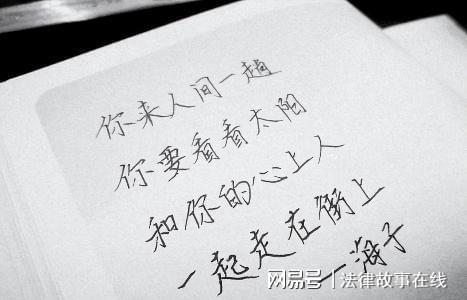 你来人间一趟
你要看看太阳
和你的心上人
一起走在街上
—海子
网易号 | 法律故事在线